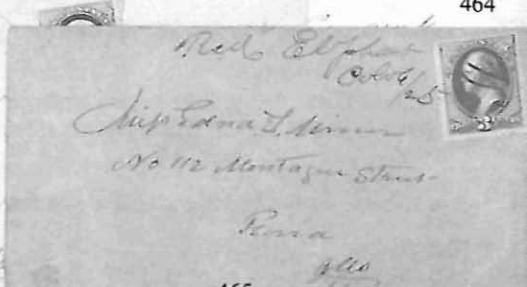 464
Red Elephant
Colo 6/25
Miss Edna L.
No 112 Montague Street
465